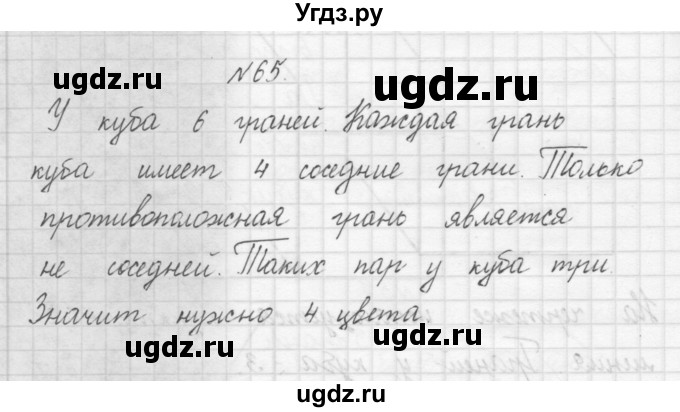 Угдз.ру
ugdz.ru
№65.
ugdz.ru
У куба 6 граней. Каждая грань
куба имеет 4 соседние грани. Только
противоположная грань является
не соседней. Таких пар у куба три.
Значит нужно 4 цвета.
ugdz.ru
ugdz.ru